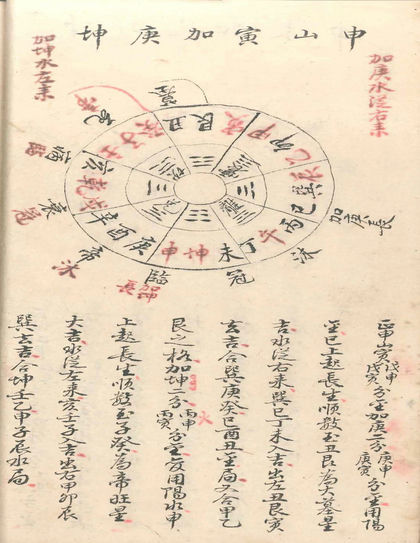 申山寅加庚坤
加庚水從右耒
加坤水左耒
加庚長
加坤長
艮丑
寅甲
卯乙
辰巽巳
丙午丁
未坤申
庚酉辛
戌乾亥
壬子癸
冠
臨
帝
衰
正申山寅戊申戊寅分金加庚二分庚申庚寅分金用陽
金巳上起長生順數至丑艮為大墓星
吉水從右耒巽巳丁未入吉出左丑艮寅
玄吉合巽庚癸巳酉丑金局又合甲乙
艮之格加坤二分丙申丙寅分金宜用陽水申
上起長生順數至子癸為帝旺星
大吉水從左耒亥壬子入吉出右甲卯辰
巽玄吉合坤壬乙申子辰水局